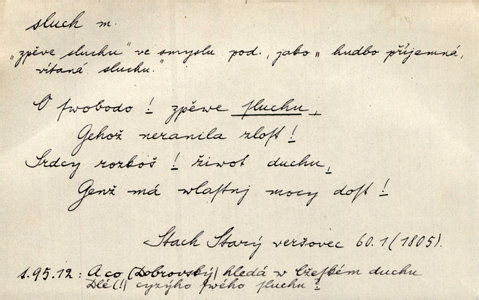 sluch m.
„zpěve sluchu" ve smyslu pod., jako „hudbo příjemná,
vítaná sluchu."
O swobodo! zpěwe sluchu,
Gehož neranila zlost!
Srdcy rozkoš! život duchu,
Genž má wlastnj mocy dost!
Stach Starý veršovec 60.1 (1805).
s.95.12: A co (Dobrovský) hledá w Českém duchu
Dlé (!) cyzýho swého sluchu?